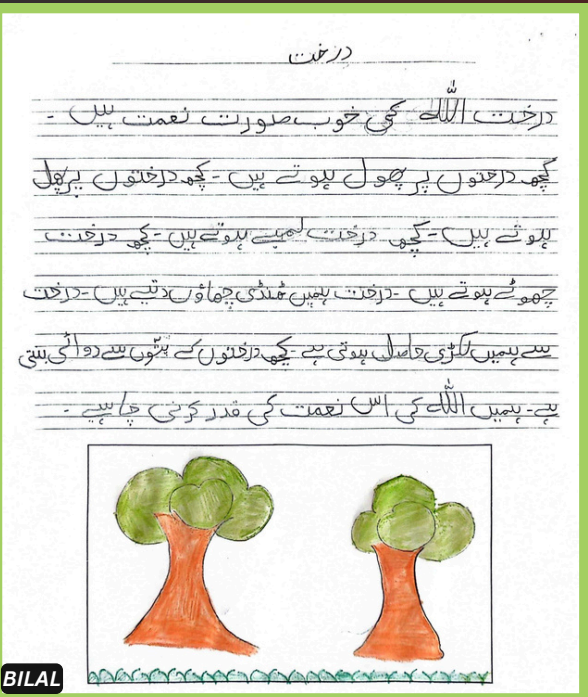 درخت
درخت اللہ کی خوب صورت نعمت ہیں -
کچھ درختوں پر پھول ہوتے ہیں - کچھ درختوں پر پھل
ہوتے ہیں - کچھ درخت لمبے ہوتے ہیں - کچھ درخت
چھوٹے ہوتے ہیں - درخت ہمیں ٹھنڈی چھاؤں دیتے ہیں - درخت
سے ہمیں لکڑی حاصل ہوتی ہے - کچھ درختوں کے پتّوں سے دوائی بنتی
ہے - ہمیں اللہ کی اس نعمت کی قدر کرنی چاہیے -
BILAL